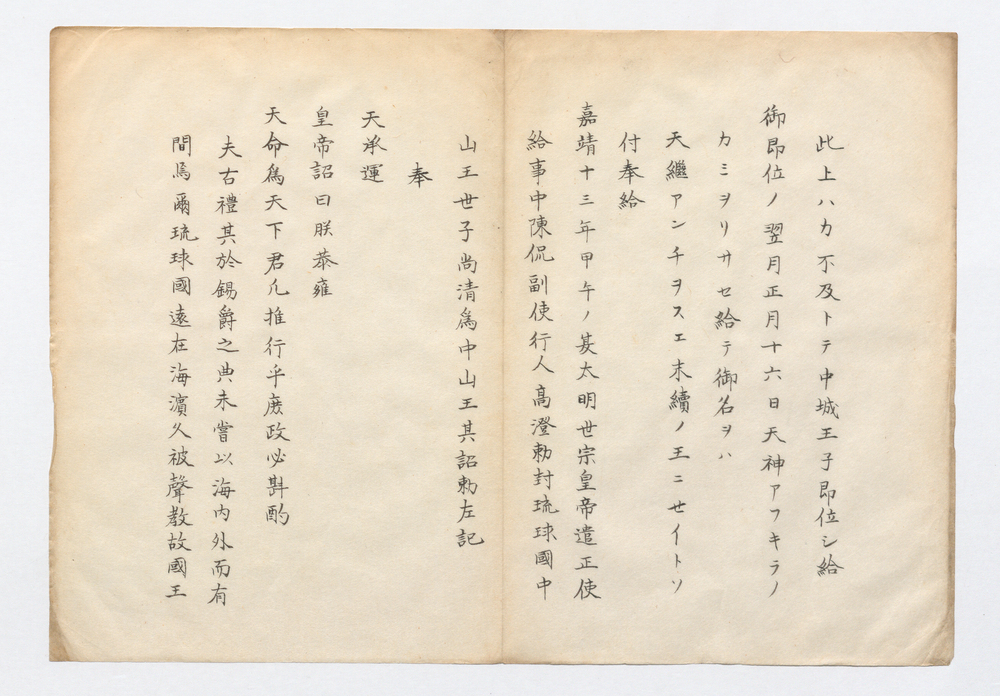 此上ハカ不及トテ中城王子即位シ給
御即位ノ翌月正月十六日天神アフキラノ
カミヲリサセ給テ御名ヲハ
天繼アンチヲスエ末續ノ王ニセイトソ
付奉給
嘉靖十三年甲午ノ夏太明世宗皇帝遣正使
給事中陳侃副使行人高澄勅封琉球國中
山王世子尚清為中山王其詔勅左記
奉
天承運
皇帝詔曰朕恭雍
天命為天下君凢推行乎庶政必斟酌
夫古禮其於錫爵之典未嘗以海内外而有
間焉爾琉球國遠在海濵久被聲教故國王